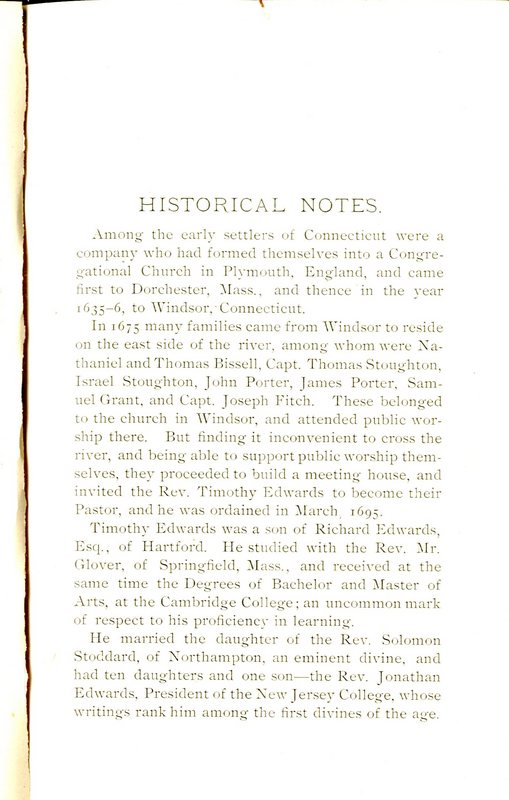 HISTORICAL NOTES.
Among the early settlers of Connecticut were a
company who had formed themselves into a Congre-
gational Church in Plymouth, England, and came
first to Dorchester, Mass., and thence in the year
1635–6, to Windsor, Connecticut.
In 1675 many families came from Windsor to reside
on the east side of the river, among whom were Na-
thaniel and Thomas Bissell, Capt. Thomas Stoughton,
Israel Stoughton, John Porter, James Porter, Sam-
uel Grant, and Capt. Joseph Fitch. These belonged
to the church in Windsor, and attended public wor-
ship there. But finding it inconvenient to cross the
river, and being able to support public worship them-
selves, they proceeded to build a meeting house, and
invited the Rev. Timothy Edwards to become their
Pastor, and he was ordained in March, 1695.
Timothy Edwards was a son of Richard Edwards,
Esq., of Hartford. He studied with the Rev. Mr.
Glover, of Springfield, Mass., and received at the
same time the Degrees of Bachelor and Master of
Arts, at the Cambridge College; an uncommon mark
of respect to his proficiency in learning.
He married the daughter of the Rev. Solomon
Stoddard, of Northampton, an eminent divine, and
had ten daughters and one son—the Rev. Jonathan
Edwards, President of the New Jersey College, whose
writings rank him among the first divines of the age.